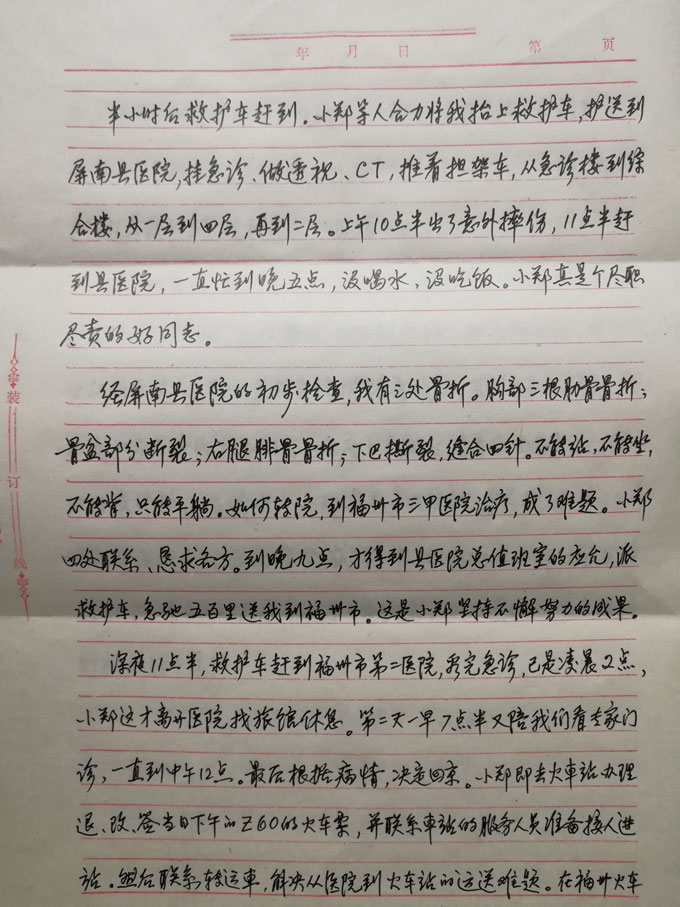 年 月 日 第 页
半小时后救护车赶到。小郑等人合力将我抬上救护车,护送到
屏南县医院,挂急诊、做透视、CT,推着担架车,从急诊楼到综
合楼,从一层到四层,再到二层。上午10点半出了意外摔伤,11点半赶
到县医院,一直忙到晚五点,没喝水,没吃饭。小郑真是个尽职
尽责的好同志。
经屏南县医院的初步检查,我有三处骨折。胸部三根肋骨骨折;
骨盆部分断裂;右腿腓骨骨折;下巴撕裂,缝合四针。不能站,不能坐,
不能背,只能平躺。如何转院,到福州市三甲医院治疗,成了难题。小郑
四处联系、恳求各方。到晚九点,才得到县医院总值班室的应允,派
救护车,急驰五百里送我到福州市。这是小郑坚持不懈努力的成果。
深夜11点半,救护车赶到福州市第二医院,看完急诊,已是凌晨2点,
小郑这才离开医院找旅馆休息。第二天一早7点半又陪我们看专家门
诊,一直到中午12点。最后根据病情,决定回京。小郑即去火車站办理
退、改、签当日下午的Z60的火车票,并联系車站的服务人员准备接人进
站。然后联系转运車,解决从医院到火车站的运送难题。在福州火车
装
订
线